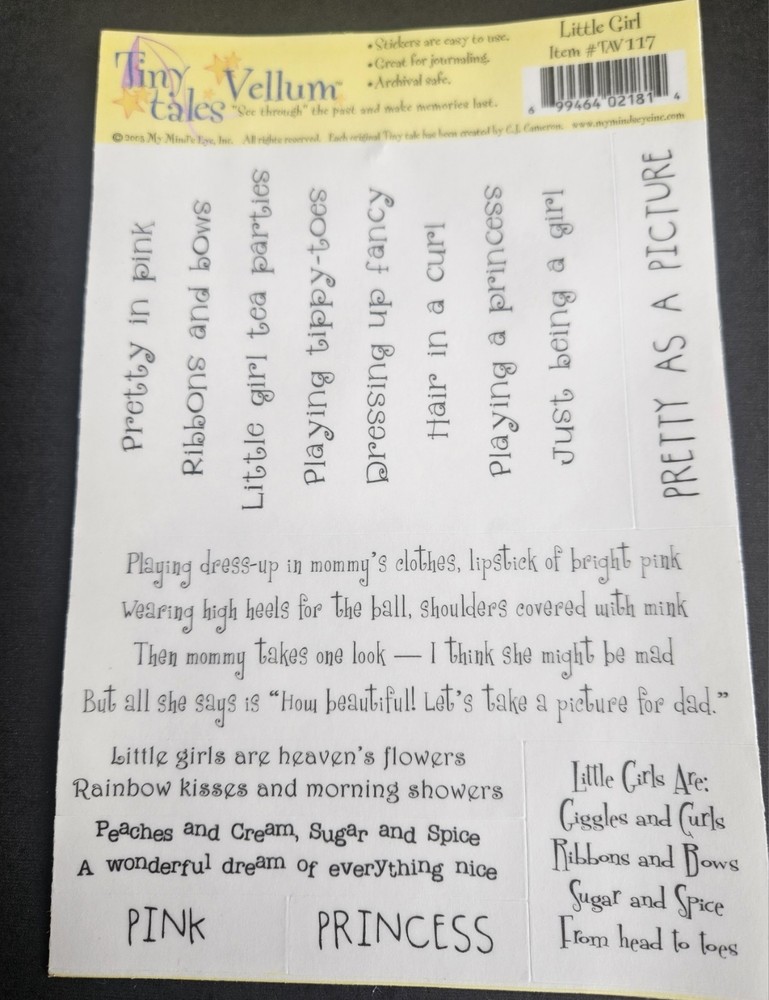 Tiny tales Vellum™
• Stickers are easy to use.
• Great for journaling.
• Archival safe.
"See through" the past and make memories last.
Little Girl
Item #TAV117
6 99464 02181 4
© 2003 My Mind's Eye, Inc. All rights reserved. Each original Tiny tale has been created by C.J. Cameron. www.mymindseyeinc.com
Pretty in pink
Ribbons and bows
Little girl tea parties
Playing tippy-toes
Dressing up fancy
Hair in a curl
Playing a princess
Just being a girl
PRETTY AS A PICTURE
Playing dress-up in mommy's clothes, lipstick of bright pink
Wearing high heels for the ball, shoulders covered with mink
Then mommy takes one look — I think she might be mad
But all she says is "How beautiful! Let's take a picture for dad."
Little girls are heaven's flowers
Rainbow kisses and morning showers
Peaches and Cream, Sugar and Spice
A wonderful dream of everything nice
PINK
PRINCESS
Little Girls Are:
Giggles and Curls
Ribbons and Bows
Sugar and Spice
From head to toes